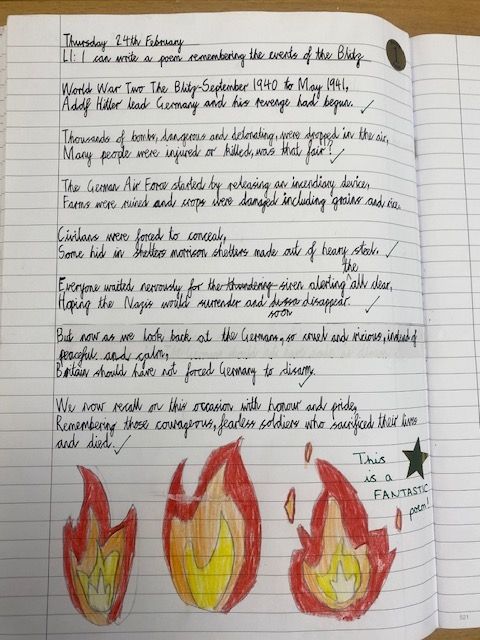 Thursday 24th February
LI: I can write a poem remembering the events of the Blitz
World War Two The Blitz-September 1940 to May 1941,
Adolf Hitler lead Germany and his revenge had begun.
Thousands of bombs, dangerous and detonating, were dropped in the air,
Many people were injured or killed, was that fair?
The German Air Force started by releasing an incendiary device,
Farms were ruined and crops were damaged including grains and rice.
Civilians were forced to conceal,
Some hid in shelters morrison shelters made out of heavy steel.
the
Everyone waited nervously for the thundering siren alerting all clear,
Hoping the Nazis would surrender and dissa disappear.
soon
But now as we look back at the Germans, so cruel and vicious, instead of
peaceful and calm,
Britain should have not forced Germany to disarm.
We now recall on this occasion with honour and pride,
Remembering those courageous, fearless soldiers who sacrificed their lives
and died.
This
is a
FANTASTIC
poem!